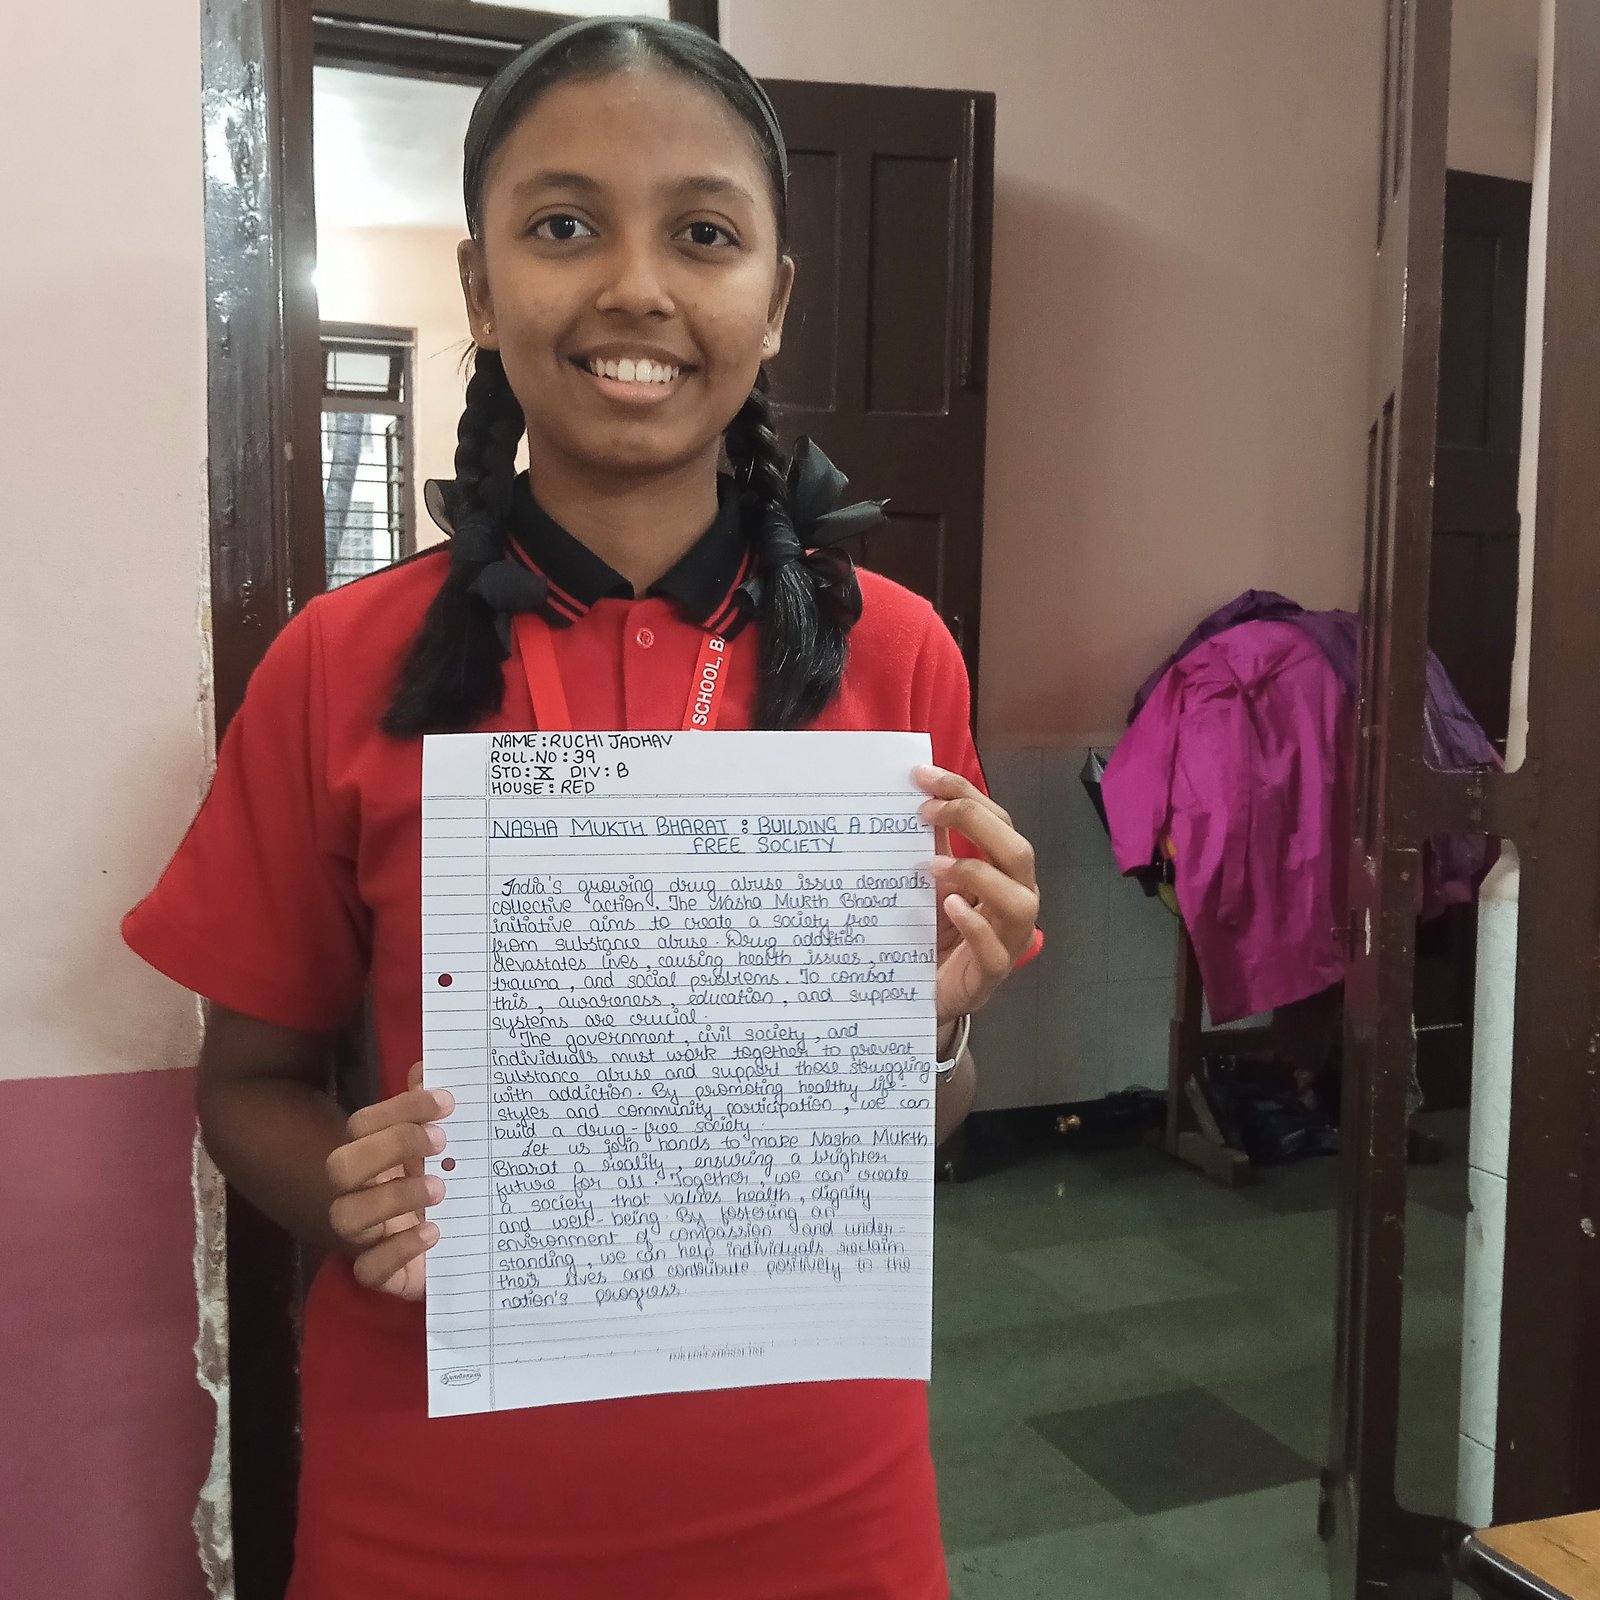 SCHOOL, BA
NAME : RUCHI JADHAV
ROLL.NO : 39
STD : X DIV : B
HOUSE : RED
NASHA MUKTH BHARAT : BUILDING A DRUG-
FREE SOCIETY
India's growing drug abuse issue demands
collective action. The Nasha Mukth Bharat
initiative aims to create a society free
from substance abuse. Drug addition
devastates lives, causing health issues, mental
trauma, and social problems. To combat
this, awareness, education, and support
systems are crucial.
The government, civil society, and
individuals must work together to prevent
substance abuse and support those struggling
with addiction. By promoting healthy life-
styles and community participation, we can
build a drug-free society.
Let us join hands to make Nasha Mukth
Bharat a reality, ensuring a brighter
future for all. Together, we can create
a society that values health, dignity
and well-being. By fostering an
environment of compassion and under-
standing, we can help individuals reclaim
their lives and contribute positively to the
nation's progress.
Sundaram